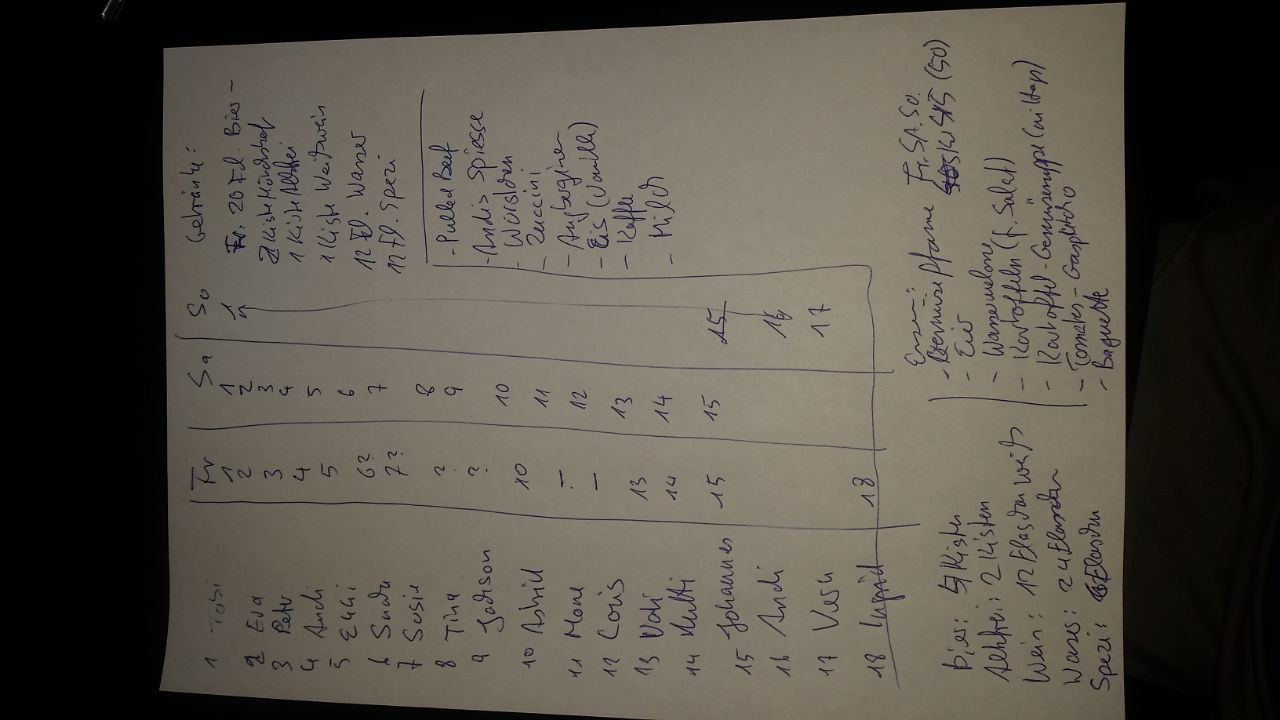 Fr Sa So
1 Tobi 1 1 1
2 Eva 2 2
3 Peter 3 3
4 Andi 4 4
5 Elli 5 5
6 Sandra 6? 6
7 Susie 7? 7
8 Tina ? 8
9 Jackson ? 9
10 Astrid 10 10
11 Mone – 11
12 Loris – 12
13 Vati 13 13
14 Mutti 14 14
15 Johannes 15 15 15
16 Andi 16
17 Vesn 17
18 Ingrid 18
Getränke:
Fr. 20 Fl. Bier –
2 Kiste
1 Kiste
1 Kiste Weißwein
12 Fl. Wasser
12 Fl. Spezi
- Pulled Beef
- Andis Spiesse
- Würstchen
- Zuccini
- Auberginen
- Eis (Vanille)
- Kaffe
- Milch
Bier: Kisten
2 Kisten
Wein: 12 Flaschen weiß
Wasser: 24 Flaschen
Spezi: 6 Flaschen
Essen: Fr. Sa. So.
(50)
- Eier
- Wassermelone
- Kartoffeln (f. Salat)
- Kartoffel-Gemüsesuppe (mittags)
- Tomaten-Gaspacho
- Baguette